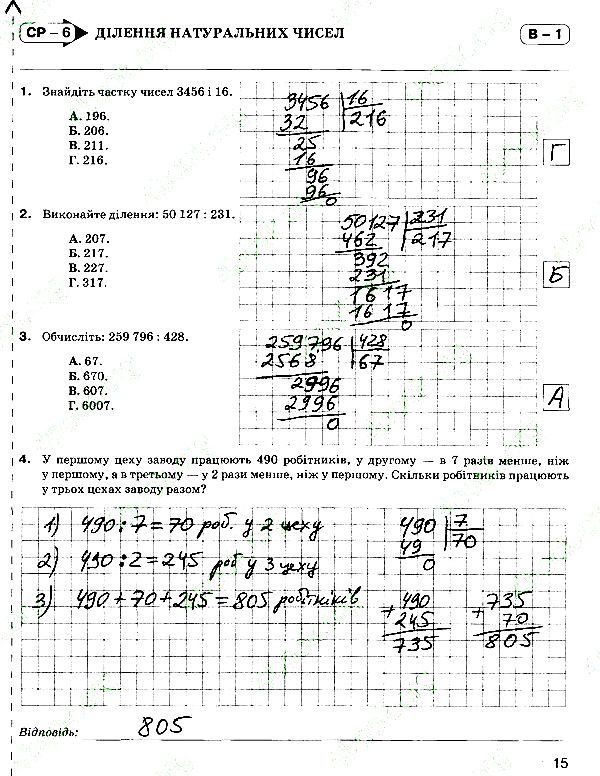 СР – 6 ДІЛЕННЯ НАТУРАЛЬНИХ ЧИСЕЛ В – 1
1. Знайдіть частку чисел 3456 і 16.
А. 196.
Б. 206.
В. 211.
Г. 216.
3456 16
32 216
25
16
96
96
0
Г
2. Виконайте ділення: 50 127 : 231.
А. 207.
Б. 217.
В. 227.
Г. 317.
50127 231
462 217
392
231
1617
1617
0
Б
3. Обчисліть: 259 796 : 428.
А. 67.
Б. 670.
В. 607.
Г. 6007.
259796 428
2568 67
2996
2996
0
А
4. У першому цеху заводу працюють 490 робітників, у другому — в 7 разів менше, ніж
у першому, а в третьому — у 2 рази менше, ніж у першому. Скільки робітників працюють
у трьох цехах заводу разом?
1) 490 : 7 = 70 роб. у 2 цеху
2) 490 : 2 = 245 роб у 3 цеху
3) 490 + 70 + 245 = 805 робітників
490 7
49 70
0
490
+ 245
735
735
+ 70
805
Відповідь: 805
15